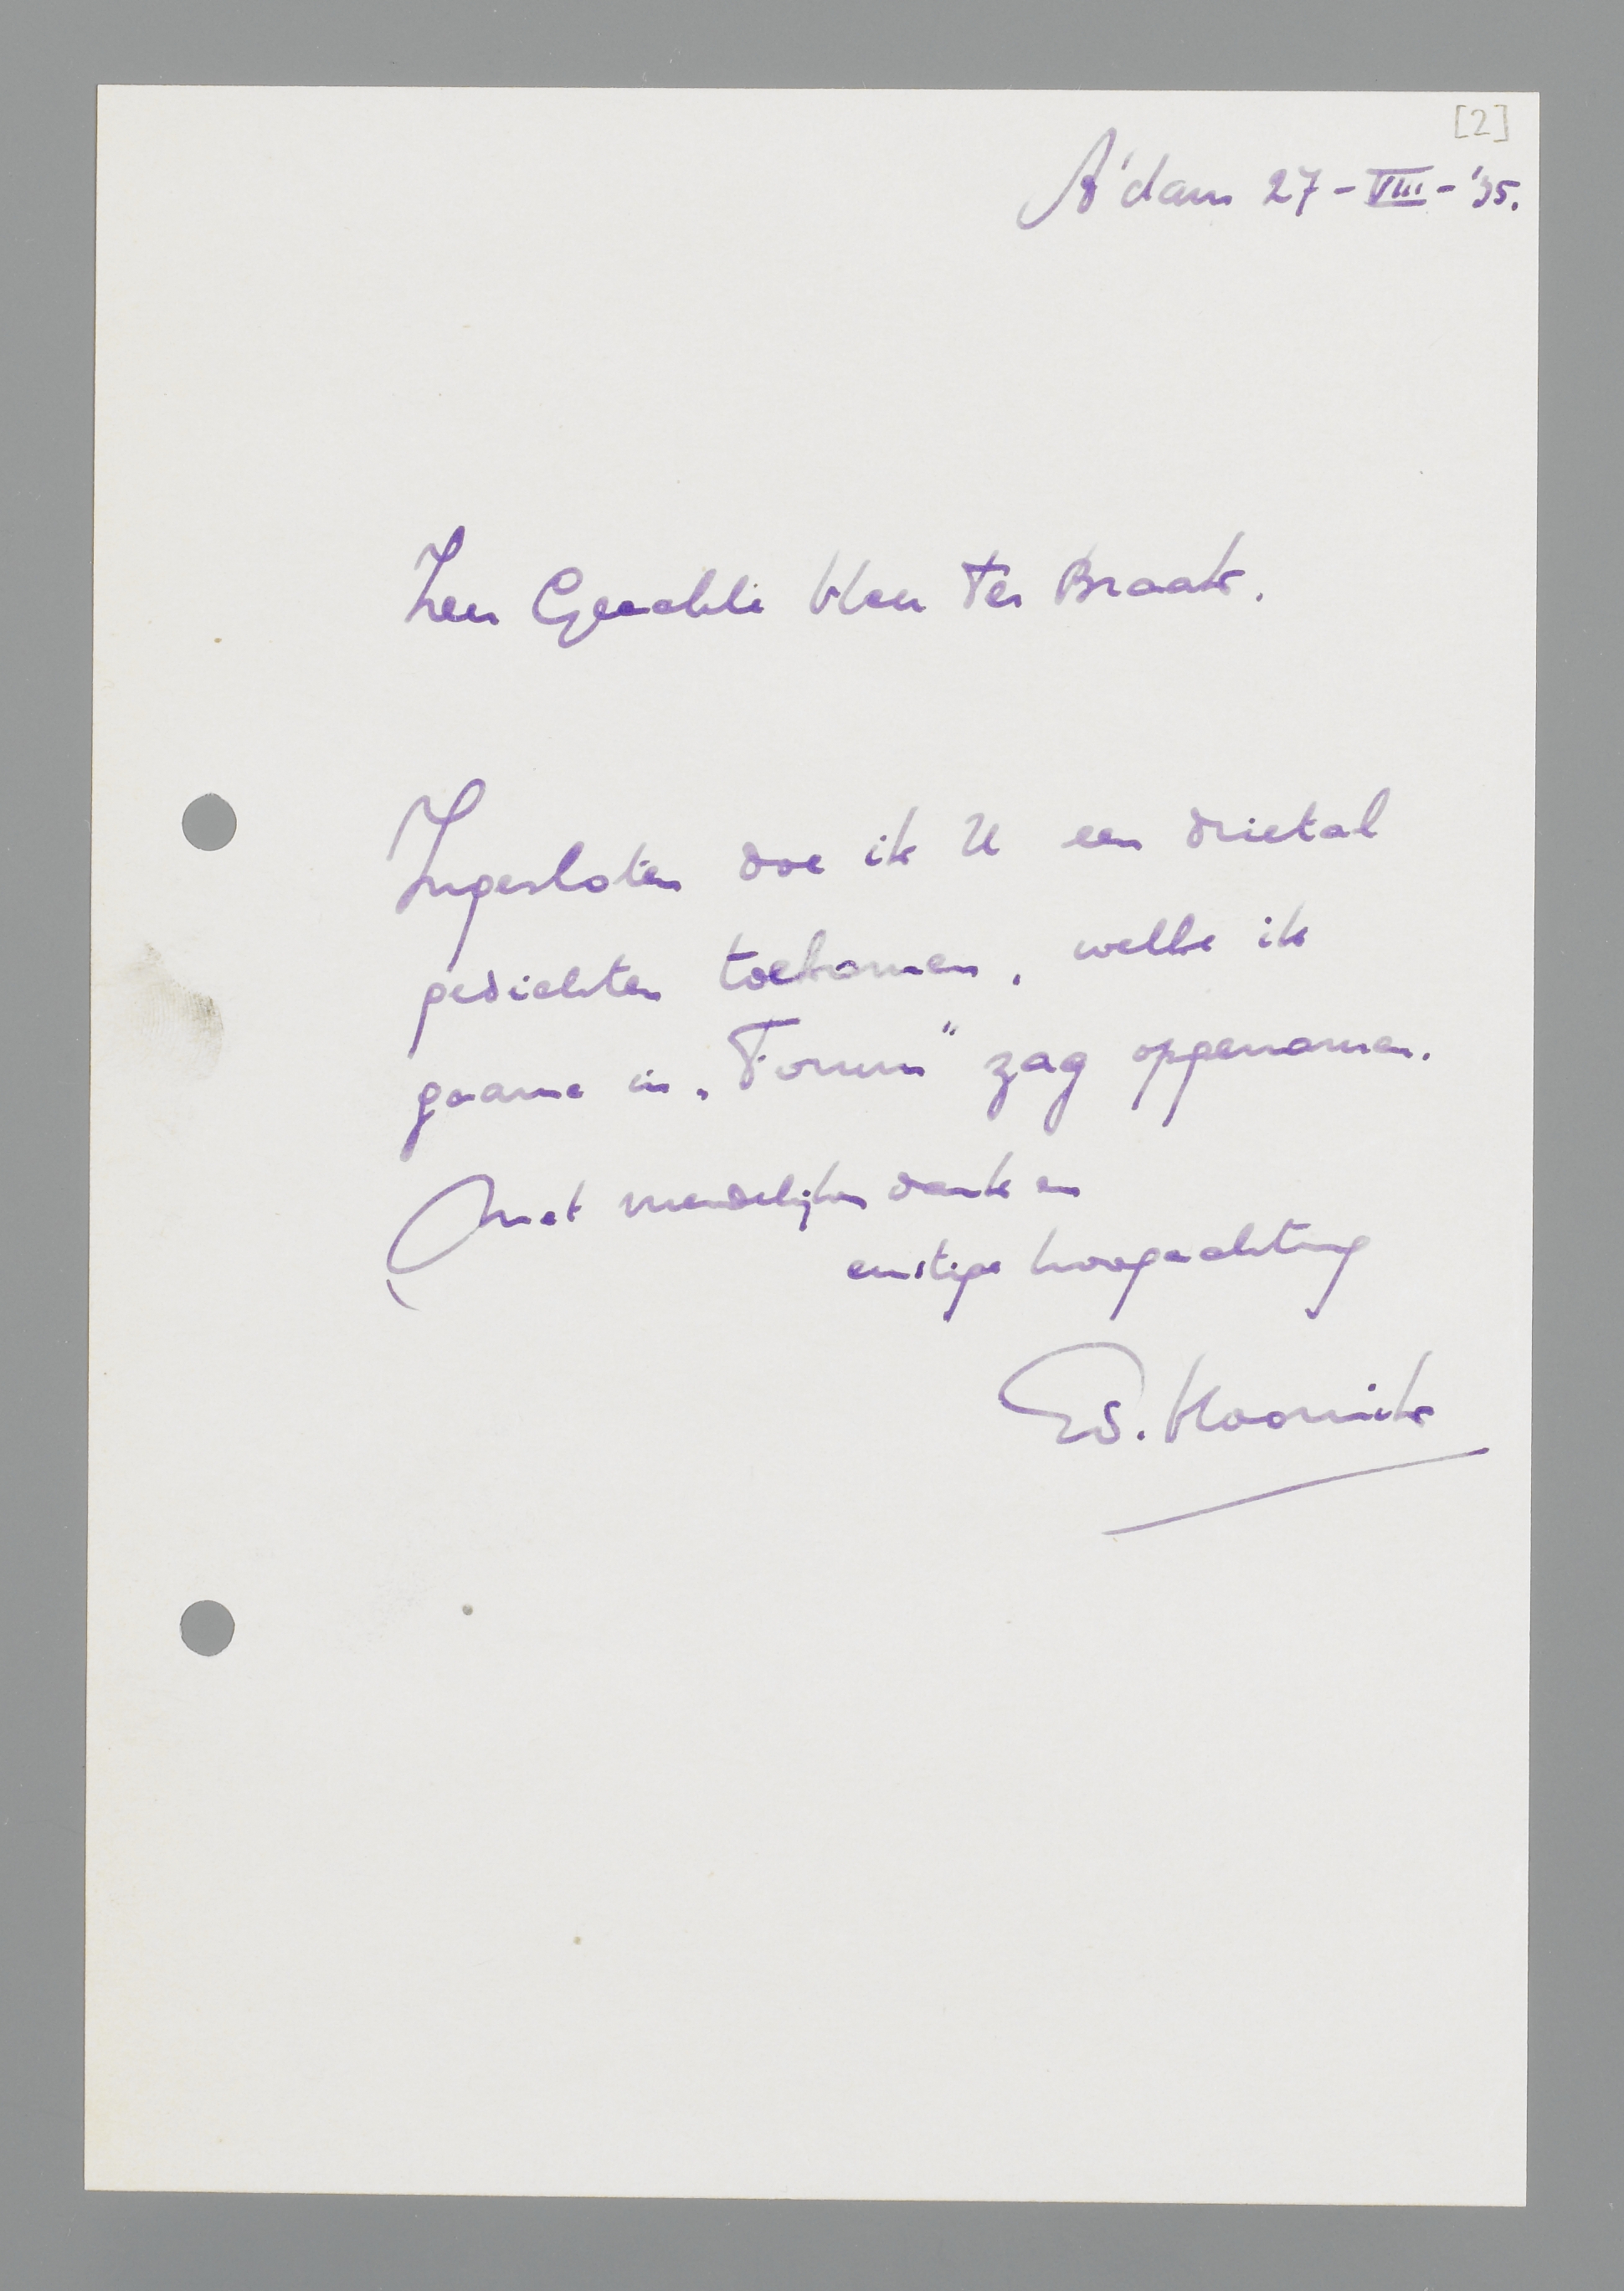 [2]
A'dam 27-VIII-'35.
Zeer Geachte Heer Ter Braak.
Ingesloten doe ik U een drietal
gedichten toekomen, welke ik
gaarne in „Forum" zag opgenomen.
Met vriendelijken dank en
ernstige hoogachting
Ed. Hoornik